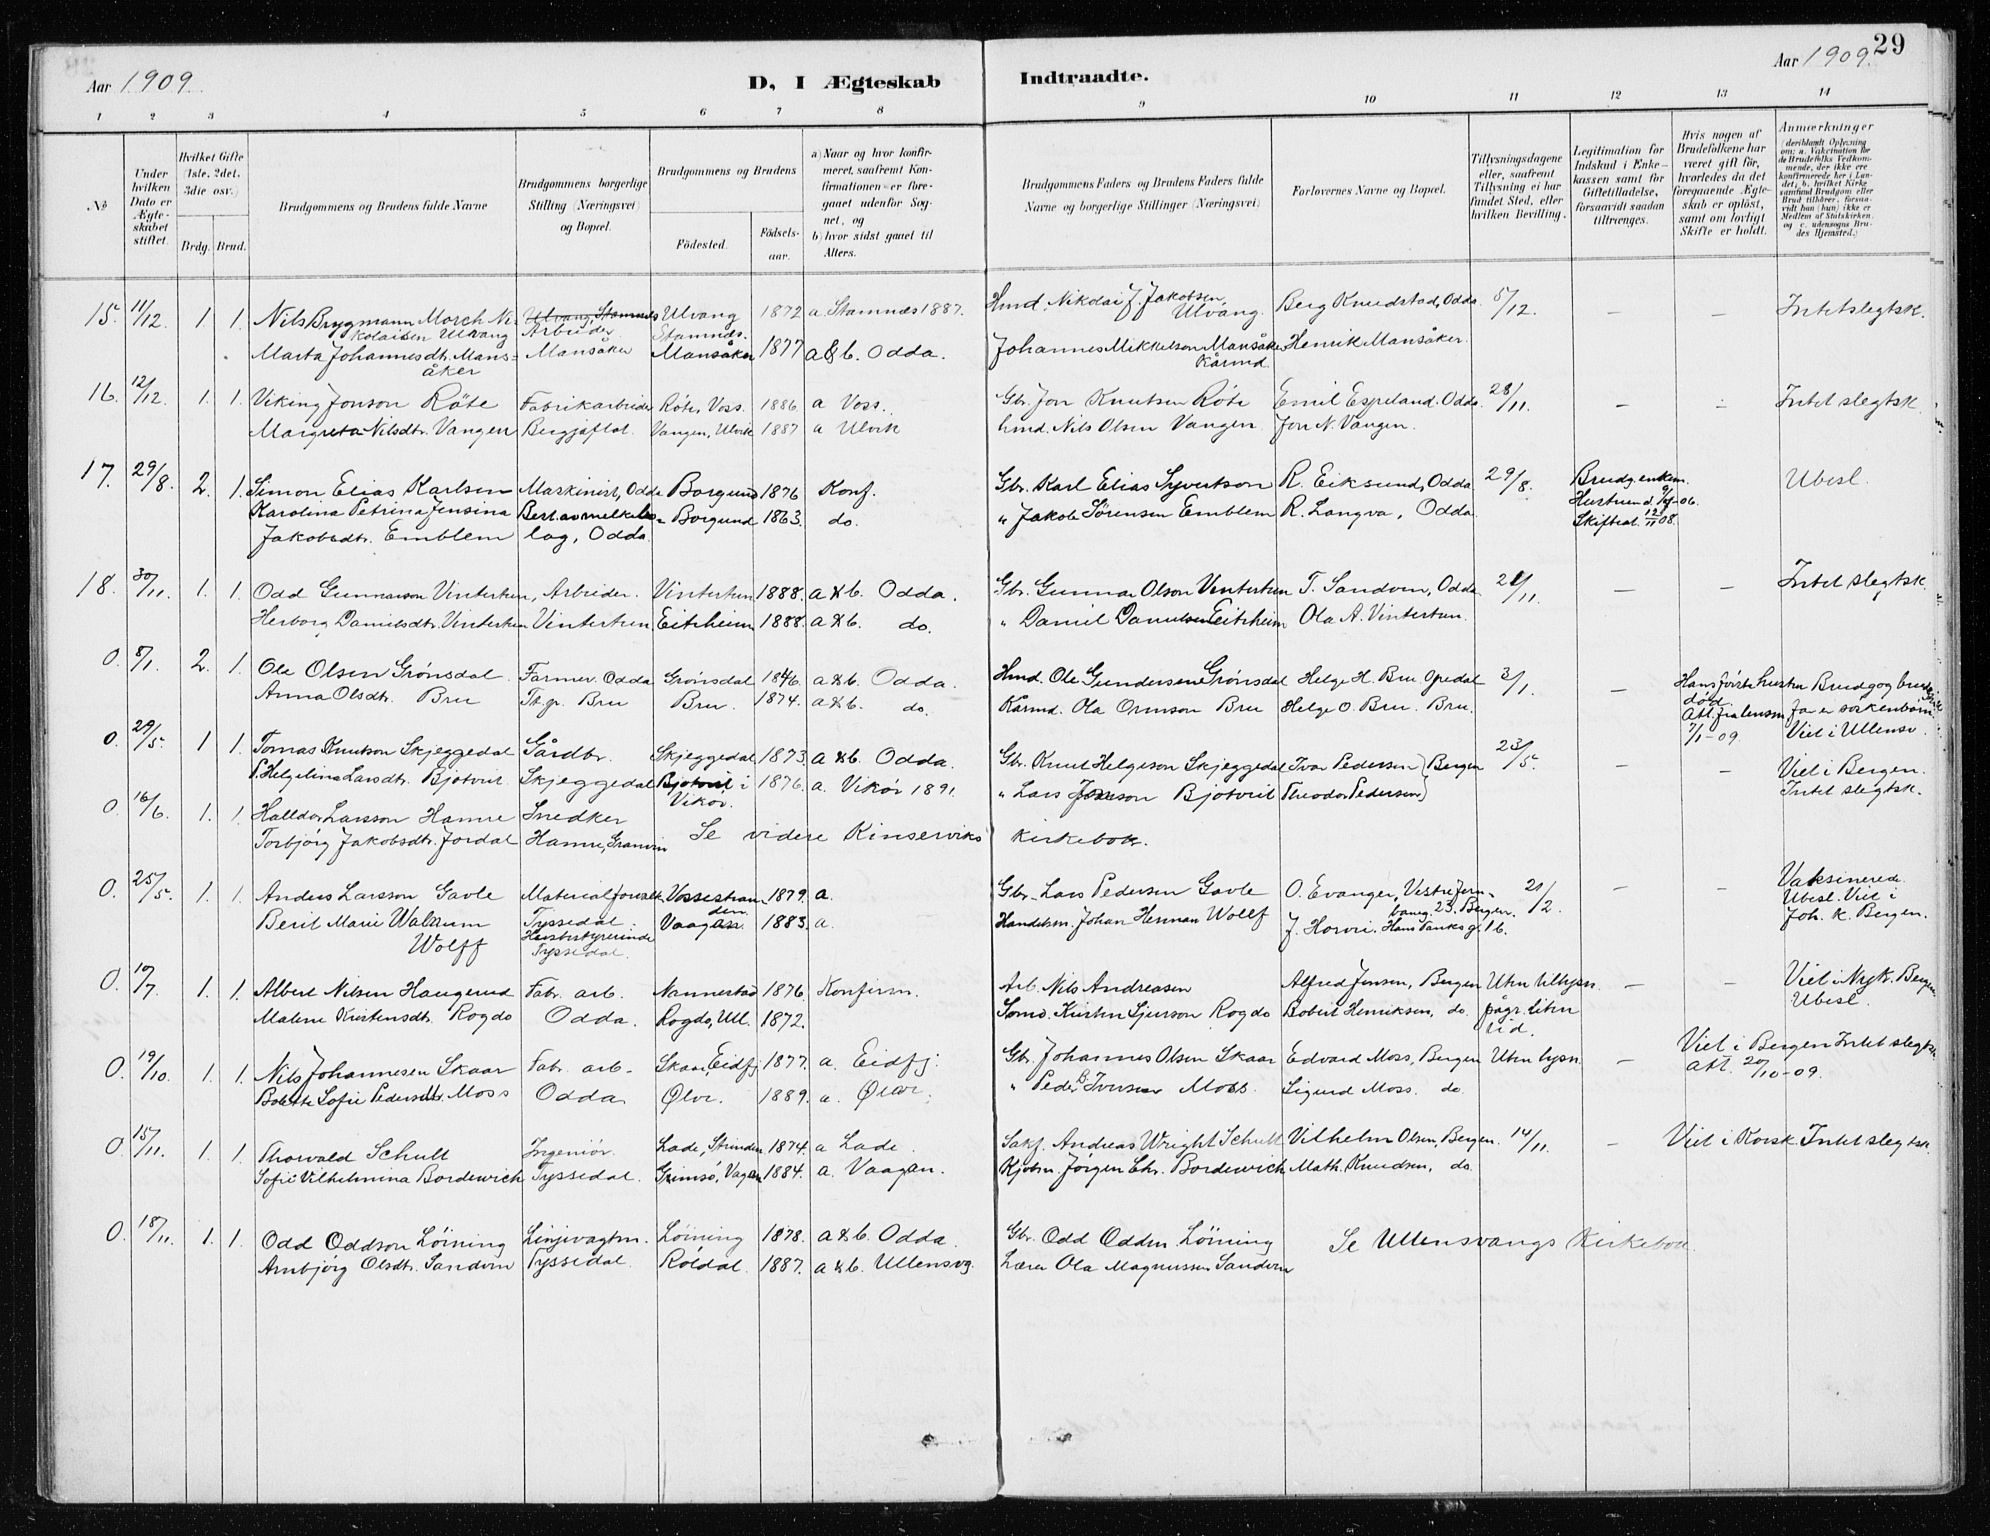 29
Aar 1909. D, I Ægteskab Indtraadte. Aar 1909.
1 2 3 4 5 6 7 8 9 10 11 12 13 14
No
Under hvilken Dato er Ægteskabet stiftet.
Hvilket Gifte (1ste, 2det, 3die osv.)
Brdg. Brud.
Brudgommens og Brudens fulde Navne
Brudgommens borgerlige Stilling (Næringsvei) og Bopæl.
Brudgommens og Brudens
Fødested. Fødselsaar.
a) Naar og hvor konfirmeret, saafremt Konfirmationen er foregaaet udenfor Sognet, og
b) hvor sidst gaaet til Alters.
Brudgommens Faders og Brudens Faders fulde Navne og borgerlige Stillinger (Næringsvei)
Forlovernes Navne og Bopæl.
Tillysningsdagene eller, saafremt Tillysning ei har fundet Sted, efter hvilken Bevilling.
Legitimation for Indskud i Enkekassen samt for Giftetilladelse, forsaavidt saadan tiltrænges.
Hvis nogen af Brudefolkene har været gift før, hvorledes da det foregaaende Ægteskab er opløst, samt om lovligt Skifte er holdt.
Anmærkninger (deriblandt Oplysning om: a. Vakcination for de Brudefolks Vedkommende, der ikke ere konfirmerede her i Landet; b. hvilket Kirkesamfund Brudgom eller Brud tilhører, forsaavidt han (hun) ikke er Medlem af Statskirken, og c. udensogns Brudes Hjemsted.)
15. 11/12. 1 1. Nils Brygmann Morch Ni- Ulvang, Stamnes Ulvang 1872 a. Stamnes 1887. Hmd. Nikolai J. Jakobsen Berg Knudstad, Odda 5/12. — — Intet slegtsk.
kolaisen Ulvang Arbeider Stamnes. Ulvang.
Marta Johannesdt. Mans- Mansåker Mansåker 1877 a & b. Odda. Johannes Mikkelson Mansåker Henrik Mansåker.
åker Kårmd.
16. 12/12. 1. 1. Viking Jonson Röte Fabrikarbeider Röte, Voss 1886. a Voss. Gbr. Jon Knutsen Röte Emil Espeland. Odda 28/11. — — Intet slegtsk.
Margreta Nilsdtr. Vangen Vangen, Ulvik 1887 a Ulvik Hmd. Nils Olsen Vangen Jon N. Vangen.
17. 29/8. 2. 1. Simon Elias Karlsen Maskinist, Odda Borgund 1876 Konf. Gbr. Karl Elias Syvertson R. Eiksund, Odda 29/8. Brudg. enkem. Ubesl.
Karolina Petrina Jensina Best. av melkebo- Borgund 1863. do. " Jakob Sörensen Emblem R. Langva, Odda Hustru d. 9/9-06.
Jakobsdtr. Emblem lag, Odda. Skifteat. 12/11 08.
18. 30/11. 1. 1. Odd Gunnarson Vintertun, Arbeider. Vintertun 1888. a & b. Odda. Gbr. Gunnar Olson Vintertun T. Sandven, Odda 21/11. — — Intet slegtsk.
Herborg Danielsdtr. Vintertun Vintertun Eitrheim 1888. a & b. do. " Daniel Danielsen Eitrheim Ola A. Vintertun.
0. 8/1. 2. 1. Ola Olsen Grönsdal. Farmer Odda Grönsdal 1846. a & b. Odda. Hmd. Ole Gundersen Grönsdal Helge H. Bru Opedal 3/1. — Hans förste hustru død. Att. fra lensm. 7/1-09. Brudg og brud Far er sökenbarn. Viet i Ullensv.
Anna Olsdtr. Bru Tk.p. Bru Bru. 1874. a & b. do. Kårmd. Ola Ormson Bru Helge O. Bru. Bru.
0. 29/5. 1 1. Tomas Knutson Skjeggedal Gårdbr. Skjeggedal 1873. a & b. Odda. Gbr. Knut Helgeson Skjeggedal Ivar Pedersen Bergen 23/5. — — Viet i Bergen.
P. Helgelina Larsdtr. Bjotveit Skjeggedal Bjotveit i Vikör. 1876. a. Vikör 1891. " Lars Bjotveit Theodor Pedersen Intet slegtsk.
0. 16/6. 1. 1. Halldor Larsson Hamre Snedker
Torbjörg Jakobsdtr. Jordal Hamre, Granvin Se videre Kinserviks kirkebok.
0. 25/5. 1. 1. Anders Larsson Gavle Materialforvalt. Vossestran- 1879. a. Gbr. Lars Pedersen Gavle O. Evanger, Vestre Torv- 21/2. — — Vaksinered.
Berit Marie Walnum Tyssedal. den Vaagan. 1883. a. Handelsm. Johan Herman Wolff 23. Bergen. Ubesl. Viet i
Wolff Husbestyrerinde Tyssedal. J. Horvei. Hans Tanks g. 16. Joh. k. Bergen.
0. 10/7. 1. 1. Albert Nilsen Haugerud Fabr. arb. Nannestad 1876. Konfirm. Arb. Nils Andreasen Alfred Jensen, Bergen Uten tillysn. — — Viet i Nyk. Bergen.
Malene Kristensdtr. Rogdo Odda. Rogdo, Ull. 1872. Sömd. Kristen Sjurson Rogdo Robert Henriksen, do. pågr. liten tid. Ubesl.
0. 19/10. 1. 1. Nils Johannesen Skaar Fabr. arb. Skaar, Eidfj. 1877. a. Eidfj. Gbr. Johannes Olsen Skaar Edvard Moss, Bergen Uten lysn. — Viet i Bergen Intet slegtsk.
Bolette Sofie Pedersdtr. Moss Odda Ølve. 1889. a. Ølve. " Peder B. Iversen Moss. Sigurd Moss. do. Att. 20/10-09.
0. 15/11. 1. 1. Thorvald Schult Ingeniör. Lade, Strinden 1874. a Lade. Sakf. Andreas Wright Schult Vilhelm Olsen, Bergen. 14/11. — Viet i Korsk. Intet slegtsk.
Sofie Vilhelmina Bordewich Tyssedal. Grimsö, Vagan 1884. a. Vaagan. Kjöbm. Jörgen Chr. Bordewich Math. Knudsen, do.
0. 18/11. 1. 1. Odd Oddson Löining Linjevagtm. Löining 1878. a & b. Odda. Gbr. Odd Odden Löining Se Ullensvangs Kirkebok.
Arnbjörg Olsdtr. Sandven Tyssedal. Röldal. 1887. a & b. Ullensvg. Lærer Ola Magnussen Sandven